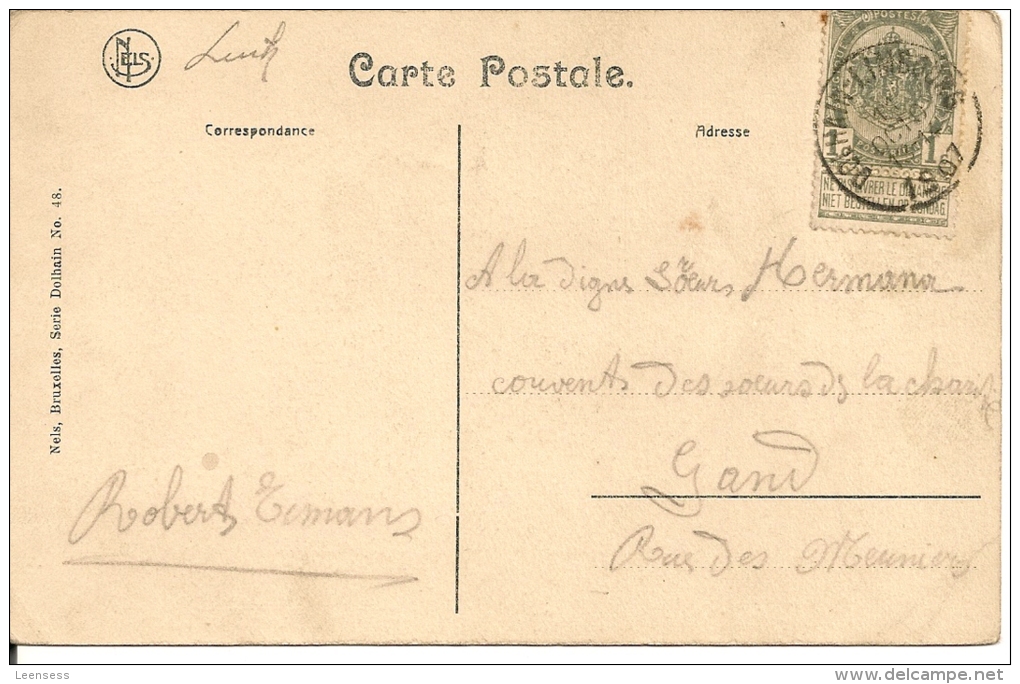 NELS
Carte Postale.
Correspondance
Adresse
POSTES
1 1
NE PAS LIVRER LE DIMANCHE
NIET BESTELLEN OP ZONDAG
1907
Nels, Bruxelles, Serie Dolhain No. 48.
A la digne Sœurs Hermana
couvents des sœurs de la charité
Gand
Rue des Meuniers
Robert
Leensess
www.delcampe.net